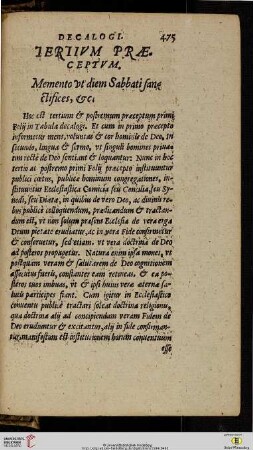 DECALOGI. 475
TERTIVM PRÆ-
CEPTVM.
Memento vt diem Sabbati san-
ctifices, &c.
Hoc est tertium & postremum præceptum primi
Folij in Tabula decalogi. Et cum in primo præcepto
informetur mens, voluntas & cor hominis de Deo, in
secundo, lingua & sermo, vt singuli homines priua-
tim recte de Deo sentiant & loquantur: Nunc in hoc
tertio ac postremo primi Folij præcepto instituuntur
publici cœtus, publicæ hominum congregationes, in-
stituuntur Ecclesiastica Comicia seu Concilia, seu Sy-
nodi, seu Diætæ, in quibus de vero Deo, ac diuinis re-
bus publicè colloquendum, prædicandum & tractan-
dum est, vt non solum præsens Ecclesia de vera erga
Deum pietate erudiatur, ac in vera Fide confirmetur
& conseruetur, sed etiam, vt vera doctrina de Deo
ad posteros propagetur. Natura enim ipsa monet, vt
postquam veram & salutarem de Deo cognitionem
assecuti fueris, constanter eam retineas, & ea po-
steros tuos imbuas, vt & ipsi huius veræ æternæ sa-
lutis participes fiant. Cum igitur in Ecclesiastico
conuentu publicè tractari soleat doctrina religionis,
qua doctrina alij ad concipiendam veram Fidem de
Deo erudiuntur & excitantur, alij in fide confirman-
tur, manifestum est institutionem horum conuentuum
esse